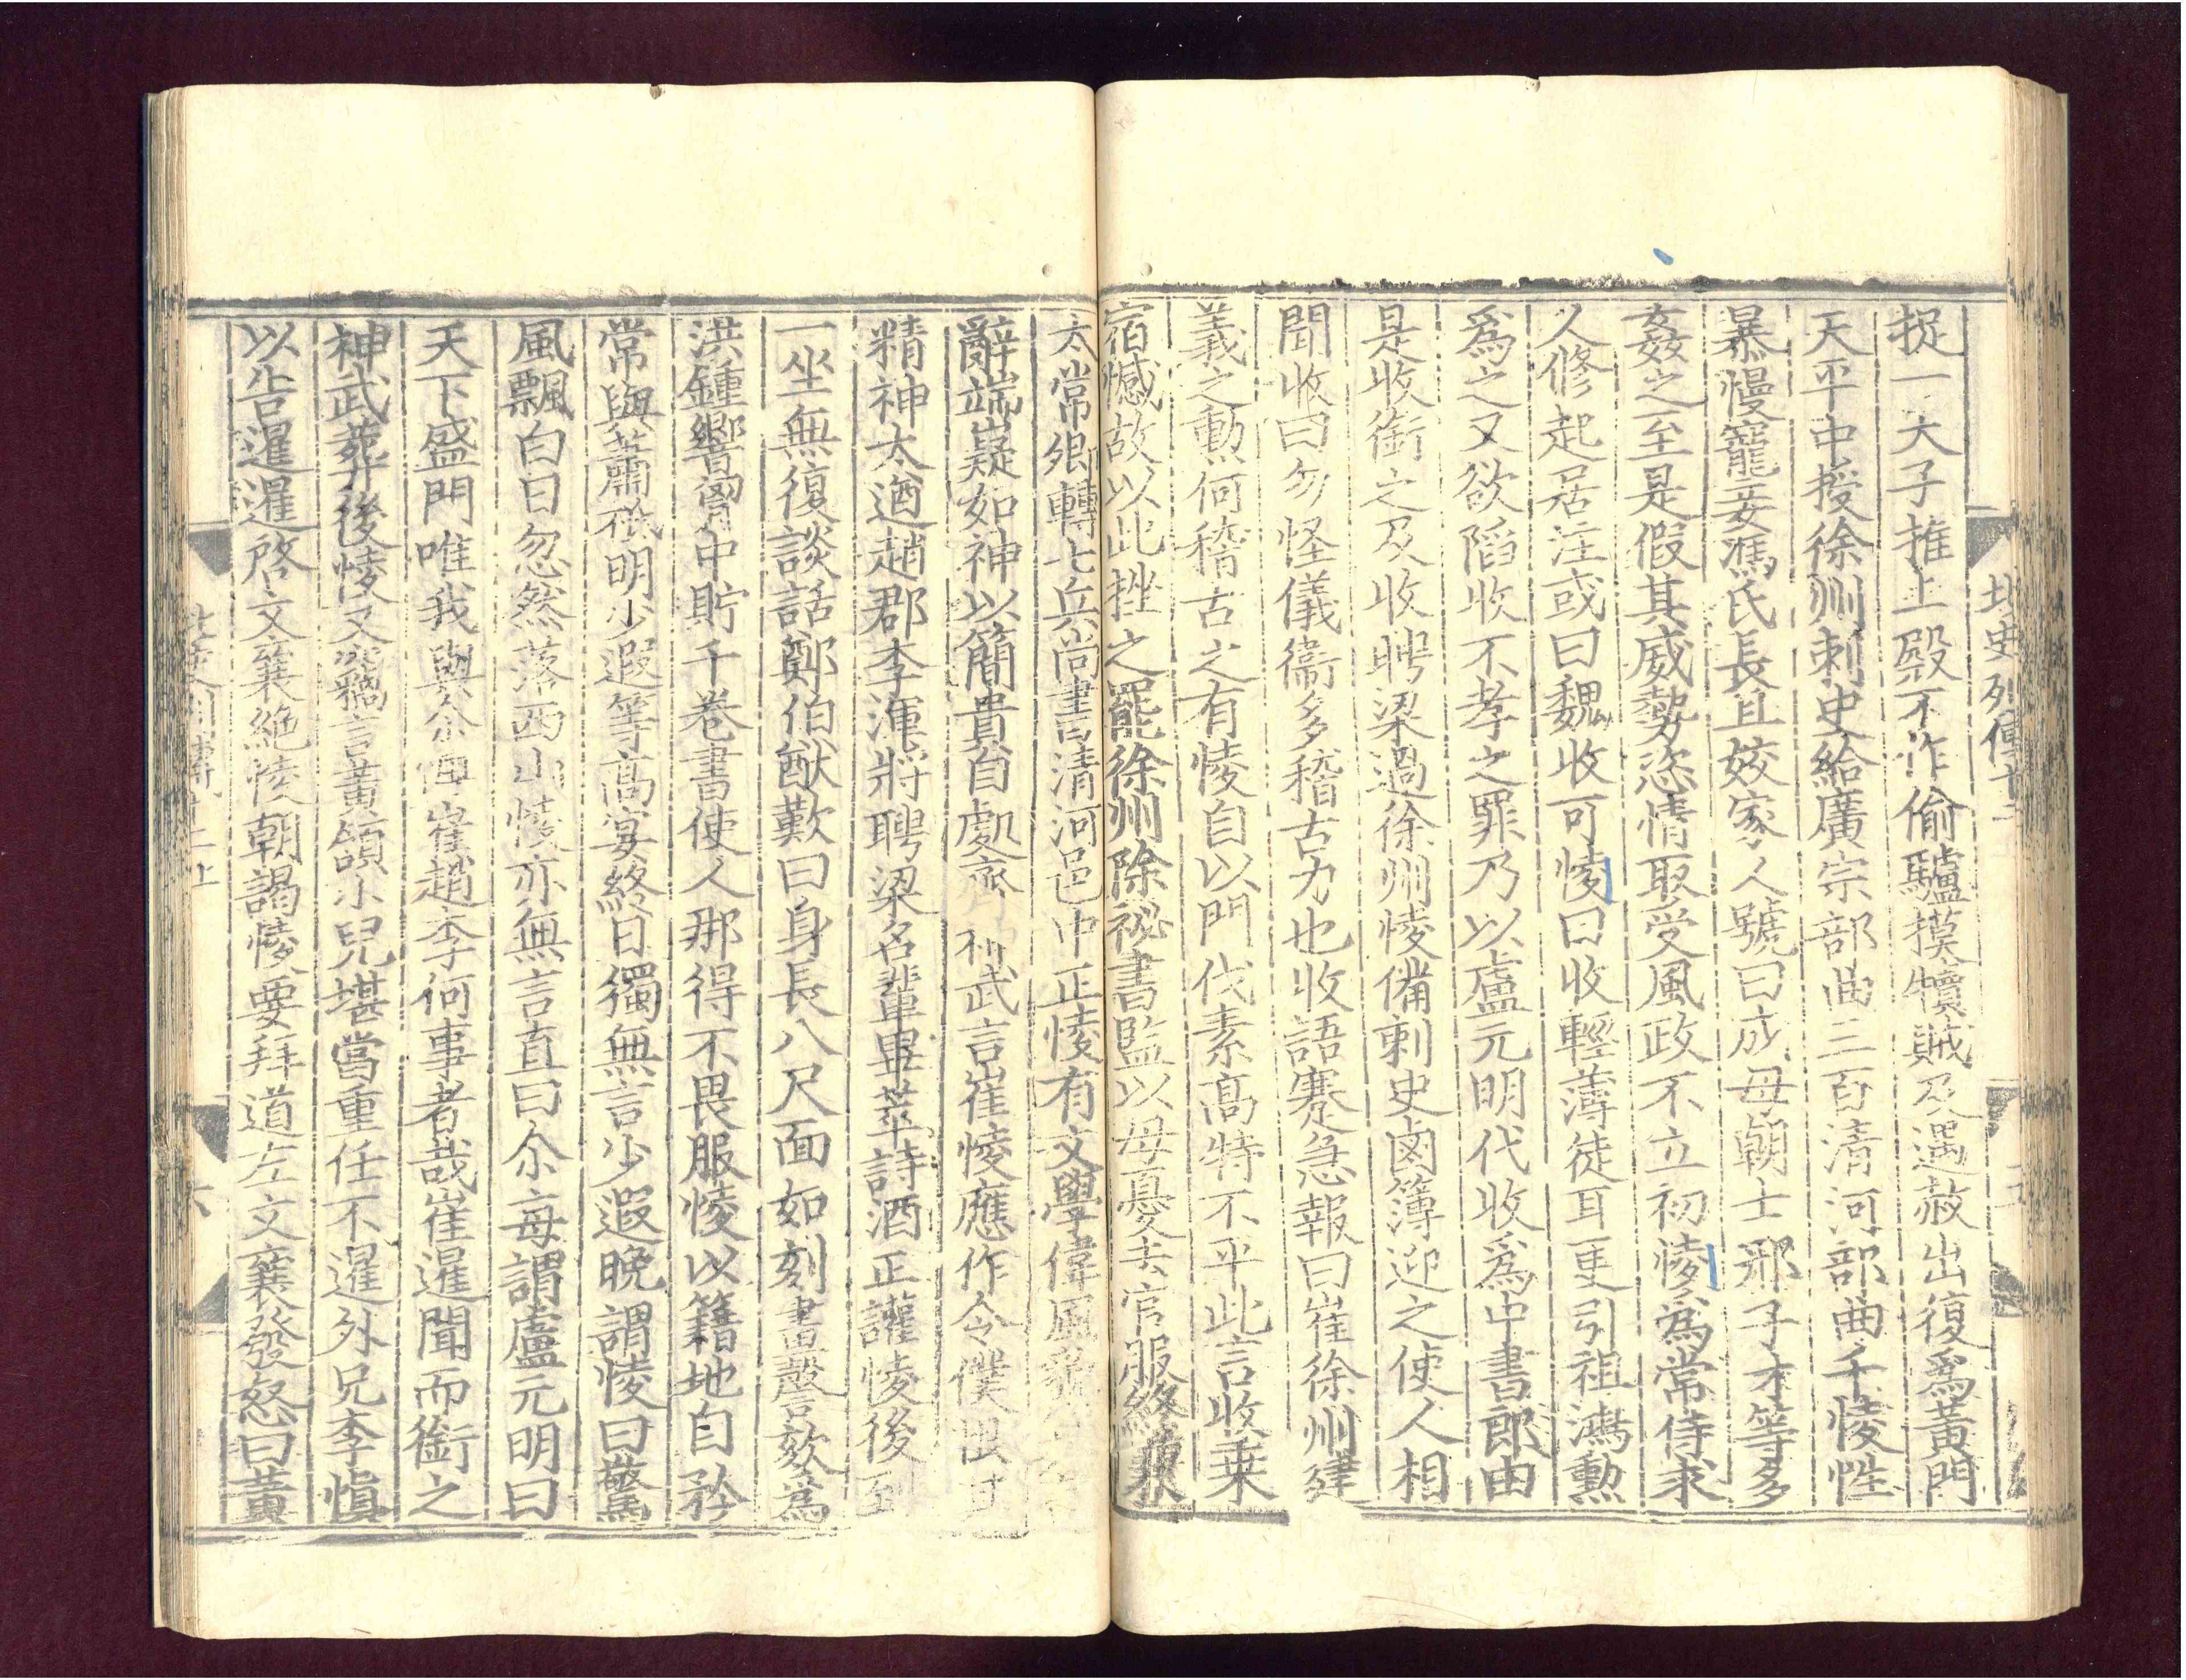 北史列傳十二
捉一天子推上殿不作偷驢摸犢賊及遇赦出復爲黃門
天平中授徐州刺史給廣宗部曲三百清河部曲千㥄性
暴慢寵妾馮氏長且姣家人號曰成母朝士邢子才等多
姦之至是假其威勢恣情取受風政不立初㥄爲常侍求
人修起居注或曰魏收可㥄曰收輕薄徒耳更引祖鴻勲
爲之又欲陷收不孝之罪乃以盧元明代收爲中書郎由
是收銜之及收聘梁過徐州㥄備刺史鹵簿迎之使人相
聞收曰勿怪儀衞多稽古力也收語蹇急報曰崔徐州建
義之勳何稽古之有㥄自以門伐素高特不平此言收乗
宿憾故以此挫之罷徐州除祕書監以母憂去官服終兼
太常卿轉七兵尚書清河邑中正㥄有文學偉風貌
辭端嶷如神以簡貴自處齊神武言崔㥄應作令僕恨其
精神太遒趙郡李渾將聘梁名輩畢萃詩酒正讙㥄後至
一坐無復談話鄭伯猷歎曰身長八尺面如刻畫謦欬爲
洪鍾響胷中貯千卷書使人那得不畏服㥄以籍地自矜
常與蕭祇明少遐等高宴終日獨無言少遐晚謂㥄曰驚
風飄白日忽然落西山㥄亦無言直曰尒每謂盧元明曰
天下盛門唯我與尒博崔趙李何事者哉崔暹聞而銜之
神武葬後㥄又竊言黃頷小兒堪當重任不暹外兄李愼
以告暹暹啓文襄絶㥄朝謁㥄要拜道左文襄發怒曰黃
六